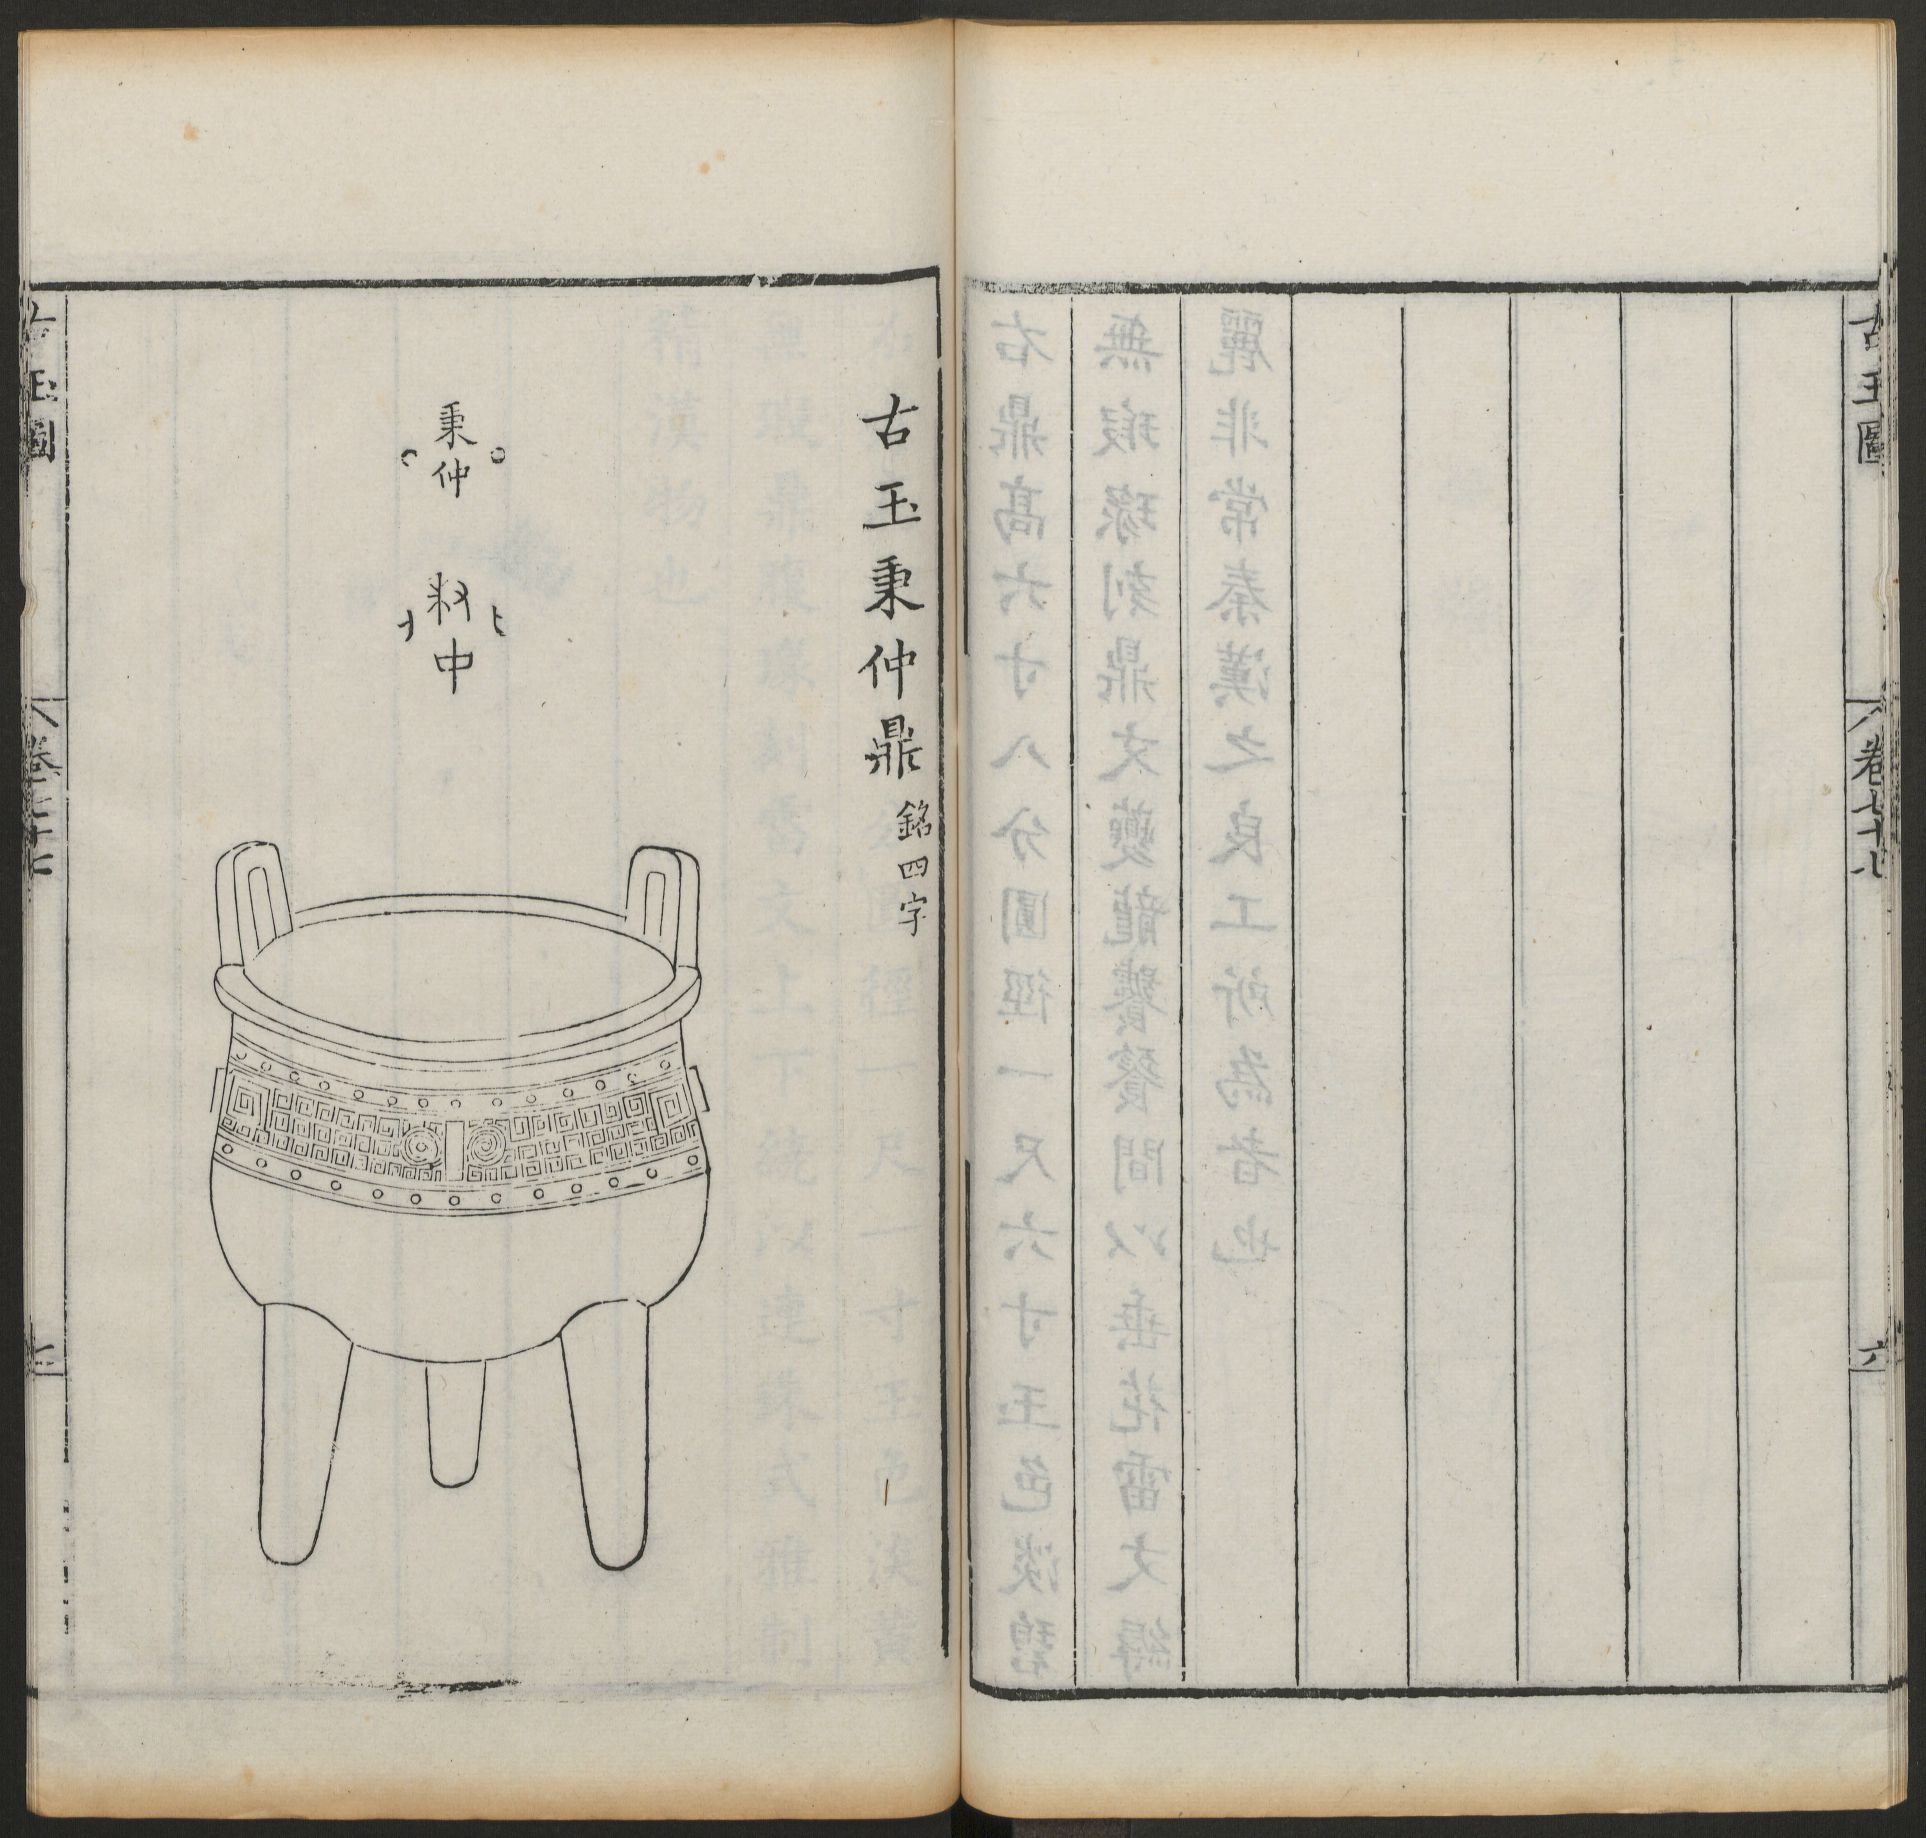 古玉圖
卷七十七
六
右鼎高六寸八分圓徑一尺六寸玉色淡碧
無瑕瑑刻鼎文夔龍饕餮間以垂花雷文縟
麗非常秦漢之良工所為者也
古玉秉仲鼎銘四字
秉仲
中
古玉圖
卷七十七
七